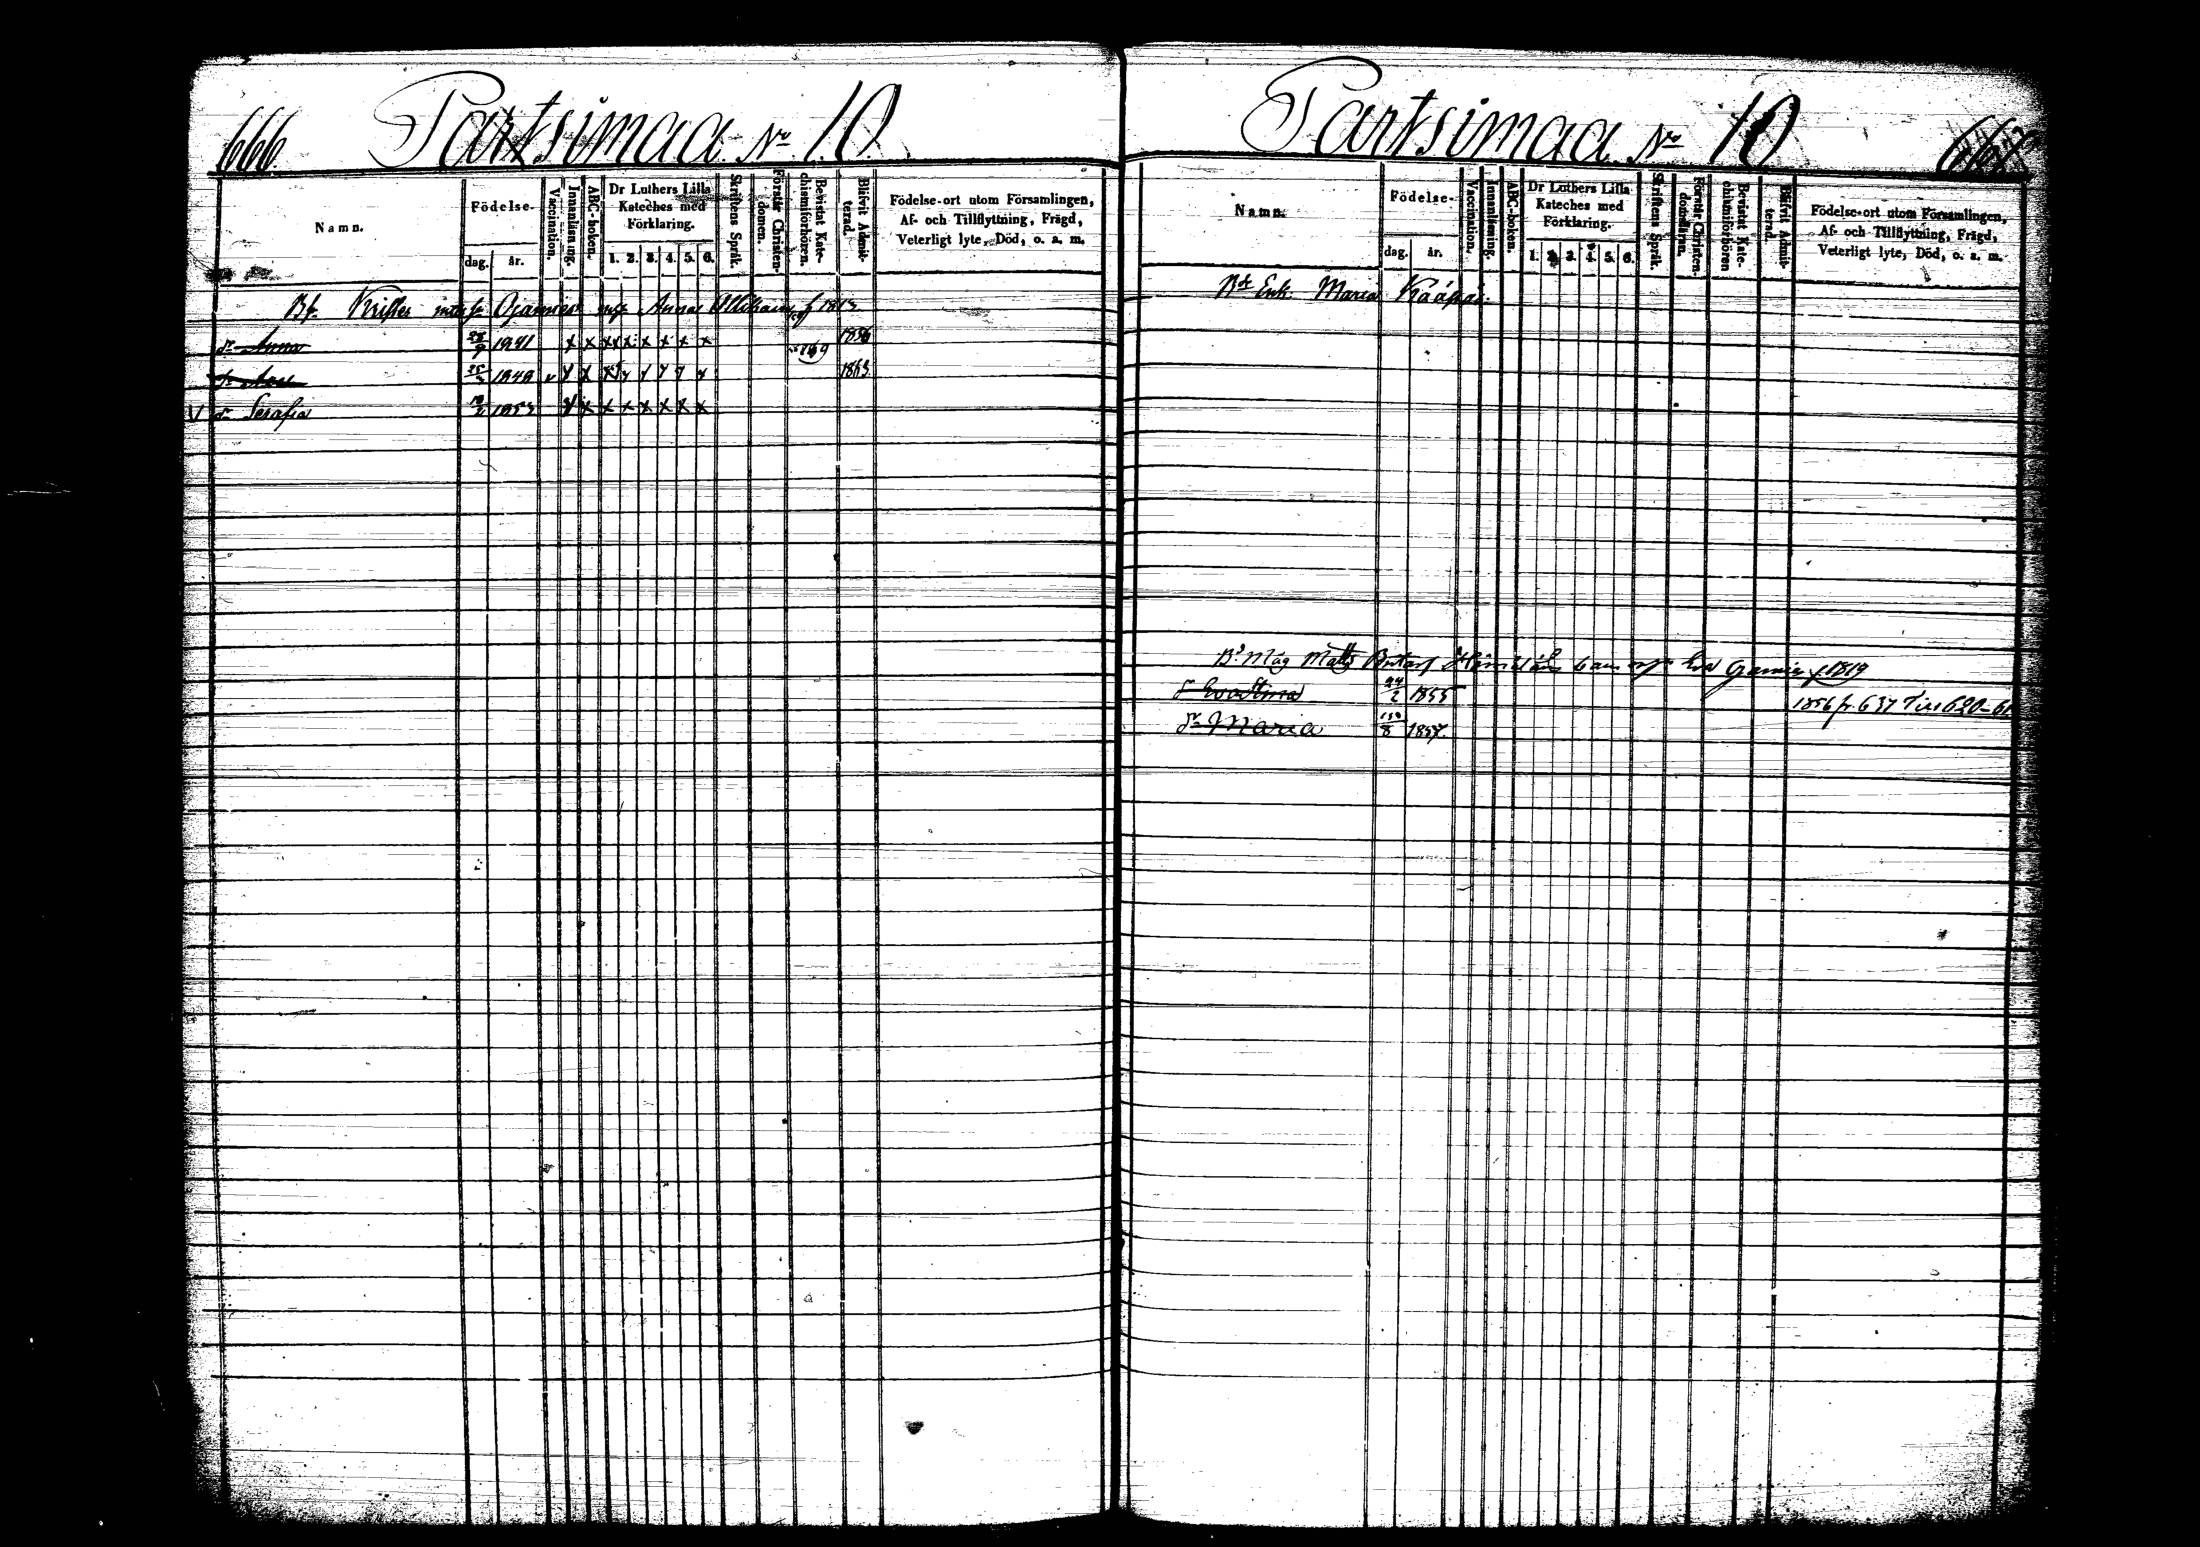 666 Partsimaa No 10
Namn.
Födelse-
dag. år.
Vaccination.
Innanläsning.
ABC-boken.
Dr Luthers Lilla Kateches med Förklaring.
1. 2. 3. 4. 5. 6.
Skriftens Språk.
Förstår Christendomen.
Bevistat Katechismiförhören.
Blifvit Admitterad.
Födelse-ort utom Församlingen,
Af- och Tillflyttning, Frägd,
Veterligt lyte, Död, o. a. m.
Bf. Krister Anna f 1813
dr Anna 1841 x x x x x x x x 1856
1849 1863
V dr Serafia 1853 x x x x x x x x
Partsimaa No 10
Namn.
Födelse-
dag. år.
Vaccination.
Innanläsning.
ABC-boken.
Dr Luthers Lilla Kateches med Förklaring.
1. 2. 3. 4. 5. 6.
Skriftens Språk.
Förstår Christendomsläran.
Bevistat Katechismiförhören
Blifvit Admitterad.
Födelse-ort utom Församlingen,
Af- och Tillflyttning, Frägd,
Veterligt lyte, Död, o. a. m.
Enk. Maria Kääpä
Bs Måg Matts Eva f 1819
dr 24/2 1855 1856 fr. 637
dr Maria 1857.